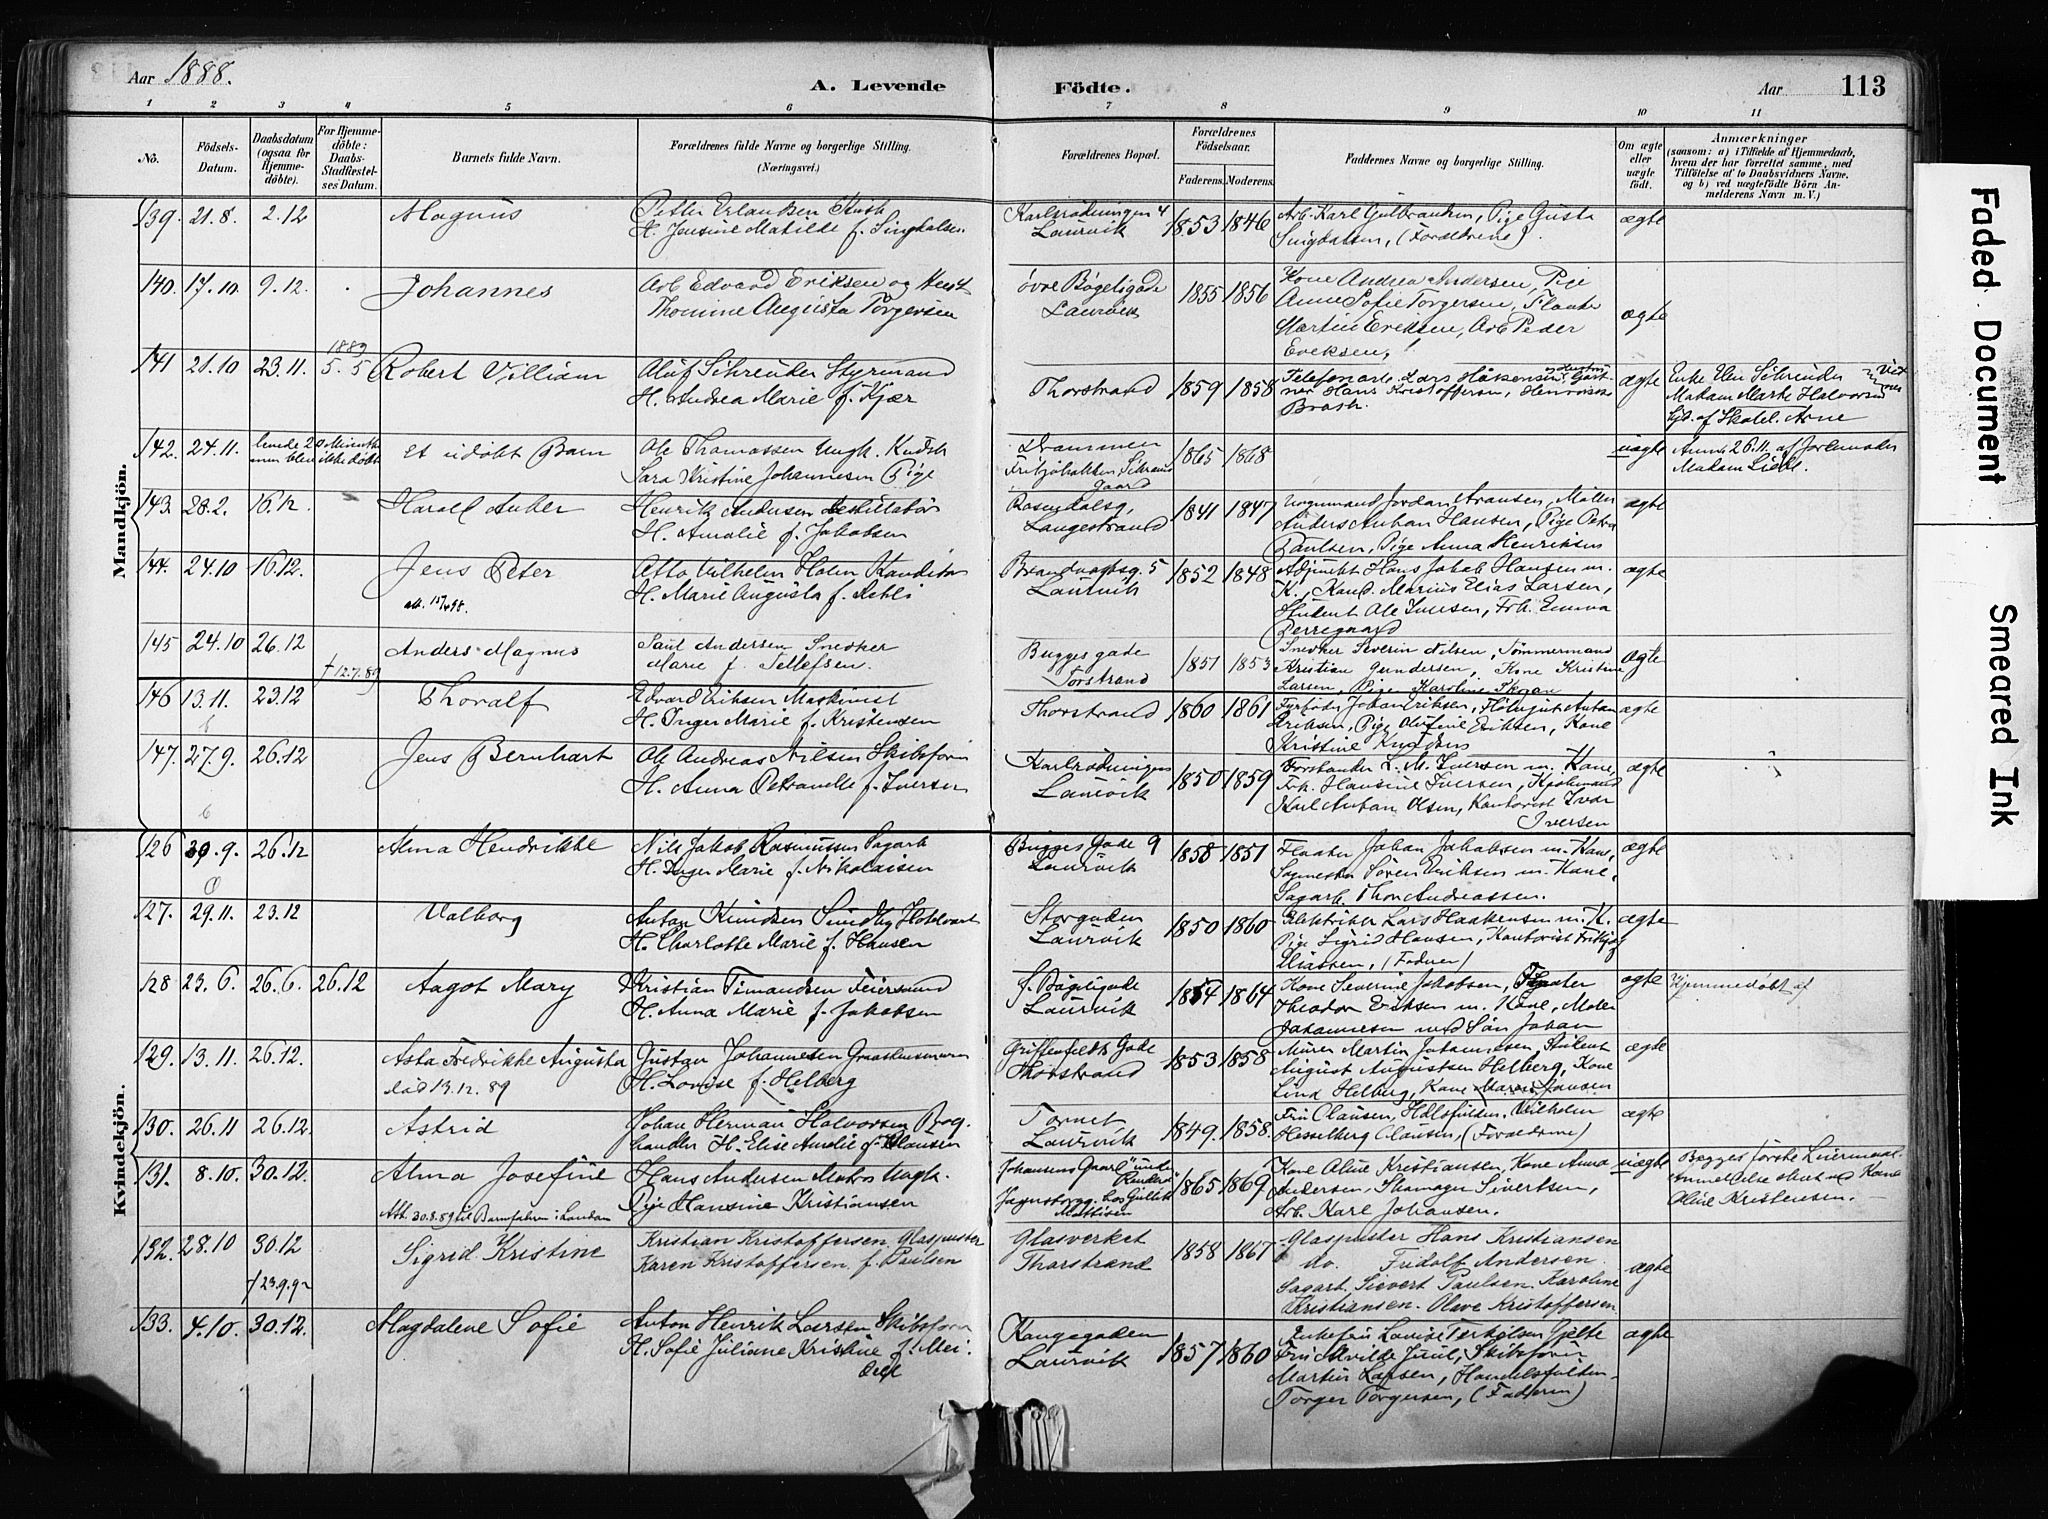 Aar 1888.
A. Levende Födte.
Aar
113
1 2 3 4 5 6 7 8 9 10 11
No.
Födsels-Datum.
Daabsdatum (ogsaa for Hjemme-döbte).
For Hjemme-döbte: Daabs-Stadfæstelses Datum.
Barnets fulde Navn.
Forældrenes fulde Navne og borgerlige Stilling. (Næringsvei.)
Forældrenes Bopæl.
Forældrenes Födselsaar.
Faderens. Moderens.
Faddernes Navne og borgerlige Stilling.
Om ægte eller uægte födt.
Anmærkninger
(saasom: a) i Tilfælde af Hjemmedaab, hvem der har forrettet samme, med Tilföielse af to Daabsvidners Navne. og b) ved uægtefödte Börn Anmelderens Navn m. V.)
Mandkjön.
139. 21.8. 2.12 Magnus
Petter Erlandsen
H. Jensine Matilde f. Singdalsen
Karlsrødningen 4
Laurvik
1853 1846
Arb. Karl Gulbrandsen, Pige Gusta
Singdalsen, (Forældrene).
ægte
140. 17.10 9.12. Johannes
Arb Edvard Eriksen og Hust
Thomine Augusta Torgersen
øvre Bøgeligade
Laurvik
1855 1856
Kone Andrea Andersen, Pige
Anne Sofie Torgersen, Fløater
Martin Eriksen, Arb Peder
Eriksen,
ægte
141 21.10 23.11. 1889 5.5 Robert Villiam
Oluf Schreuder Styrmand
H. Andrea Marie f. Kjær
Thorstrand
1859 1858
Telefonarb. Lars Håkensen
Hans Kristoffersen, Henriette
Brath.
ægte
Enke Elen Schreuder
Madam Marte Halvorsen
142. 24.11. levede 20 Minutter
men blev ikke døbt
Et udøbt Barn
Ole Thomassen Ungk.
Sara Kristine Johannesen Pige
Drammen
1865 1868
uægte
Anm. 26.11. af Jordemoder
Madam Lie
143. 28.2. 16.12 Harald Anker
Henrik Andersen Destillatør
H. Amalie f. Jakobsen
Rosendalsg,
Langestrand
1841 1847
Vognmand Jordan Aransen, Møller
Anders Anthon Hansen, Pige Petra
Paulsen, Pige Anna Henriksen
ægte
144. 24.10 16.12. Jens Peter
Otto Vilhelm Holm Konditor
H. Marie Augusta f.
Brandvagtsg. 5
Laurvik
1852 1848
Adjunkt Hans Jakob Hansen m.
K., Kand. Marius Elias Larsen,
Student Ole Iversen, Frk. Emma
Berregaard
ægte
145 24.10 26.12 † 12.7.89 Anders Magnus
Paul Andersen Snedker
Marie f. Tellefsen.
Bugges gade
Torstrand
1851 1853
Snedker Severin Nilsen, Tømmermand
Kristian Gundersen, Kone Kristine
Larsen, Pige Karoline Skran
Ægte
146 13.11. 23.12 Thoralf
Edvard Eriksen Maskinist
H. Inger Marie f. Kristensen
Thorstrand
1860 1861
Fyrbøder Johan Eriksen, Anton
Eriksen, Pige Olufine Eriksen, Kone
Kristine Knudsen
ægte
147. 27.9. 26.12 Jens Bernhart
Ole Andreas Nilsen Skibsfører
H. Anna Petranelle f. Iversen
Karlsrødningen
Laurvik
1850 1859
Forstander L. M. Iversen m. Kone,
Frk. Hansine Iversen, Kjøbmand
Karl Anton Olsen, Kontorist Ivar
Iversen
ægte
Kvindekjön.
126 30.9. 26.12 Alma Hendrikke
Nils Jakob Rasmussen Sagarb
H. Inger Marie f. Nikolaisen
Bugges Gade 9
Laurvik
1858 1851
Fløater Johan Jakobsen m. Kone,
Sagmester Søren Eriksen m. Kone,
Sagarb. Thor Andreassen.
ægte
127. 29.11. 23.12 Valborg
Anton Knudsen Sundby Hotelvært
H. Charlotte Marie f. Hansen
Storgaden
Laurvik
1850 1860
Elektriker Lars Haakensen m. K.
Pige Sigrid Hansen, Kontorist Fritjof
Eliassen, (Faderen)
ægte
128 23.6. 26.6. 26.12 Aagot Mary
Kristian Timandsen Feiersvend
H. Anna Marie f. Jakobsen
Bøgeligade
Laurvik
1854 1864
Kone Severine Jakobsen, Fløater
Theodor Eriksen m. Kone, Maler
Johannesen med Søn Johan
ægte
Hjemmedøbt af
129. 13.11. 26.12. Asta Fredrikke Augusta
død 13.12.89
Gustav Johannesen
H. Lovise f. Helberg
Griffenfeldts Gade
Thorstrand
1853 1858
Murer Martin Johannesen, Student
August Augustsen Helberg, Kone
Lina Helberg, Kone Maren Hansen
ægte
130. 26.11 26.12. Astrid
Johan Herman Halvorsen Bog-
handler H. Elise Amalie f. Clausen
Torvet
Laurvik
1849. 1858.
Fru Clausen, Vilhelm
Hesselberg Clausen, (Forældrene)
ægte
131. 8.10. 30.12. Alma Josefine
Hans Andersen Matros Ungk.
Pige Hansine Kristiansen
1865 1869
Kone Oline Kristiansen, Kone Anna
Andersen, Skomager Sivertsen,
Arb. Karl Johansen.
uægte
Begges første Leiermaal.
Oline Kristensen.
132. 28.10 30.12 † 23.9.92 Sigrid Kristine
Kristian Kristoffersen Glaspuster
Karen Kristoffersen f. Paulsen
Glasverket
Thorstrand
1858 1867
Glaspuster Hans Kristiansen
do. Fridolf Andersen
Sagarb. Sievert Paulsen. Karoline
Kristiansen. Olave Kristoffersen
ægte
133. 4.10. 30.12. Magdalene Sofie
Anton Henrik Larsen Skibsfører
H. Sofie Juliane Kristine f. Mei-
dell
Kongegaden
Laurvik
1857 1860
Enkefru Lovise Terkelsen Gjelte
Fru Alvilde Juul, Skibsfører
Martin Larsen, Handelsfuldm.
Torger Torgersen, (Faderen)
ægte
Faded Document
Smeared Ink